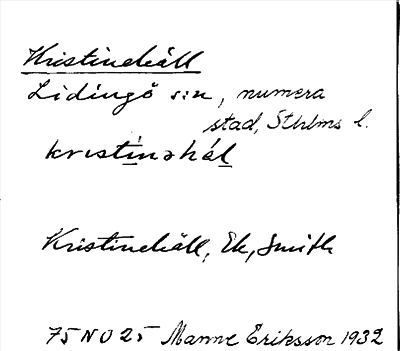 Kristinehäll
Lidingö s:n, numera
stad, Sthlms l.
kristinəhäl
Kristinehäll, Ek, Smith
75 NO 25 Manne Eriksson 1932